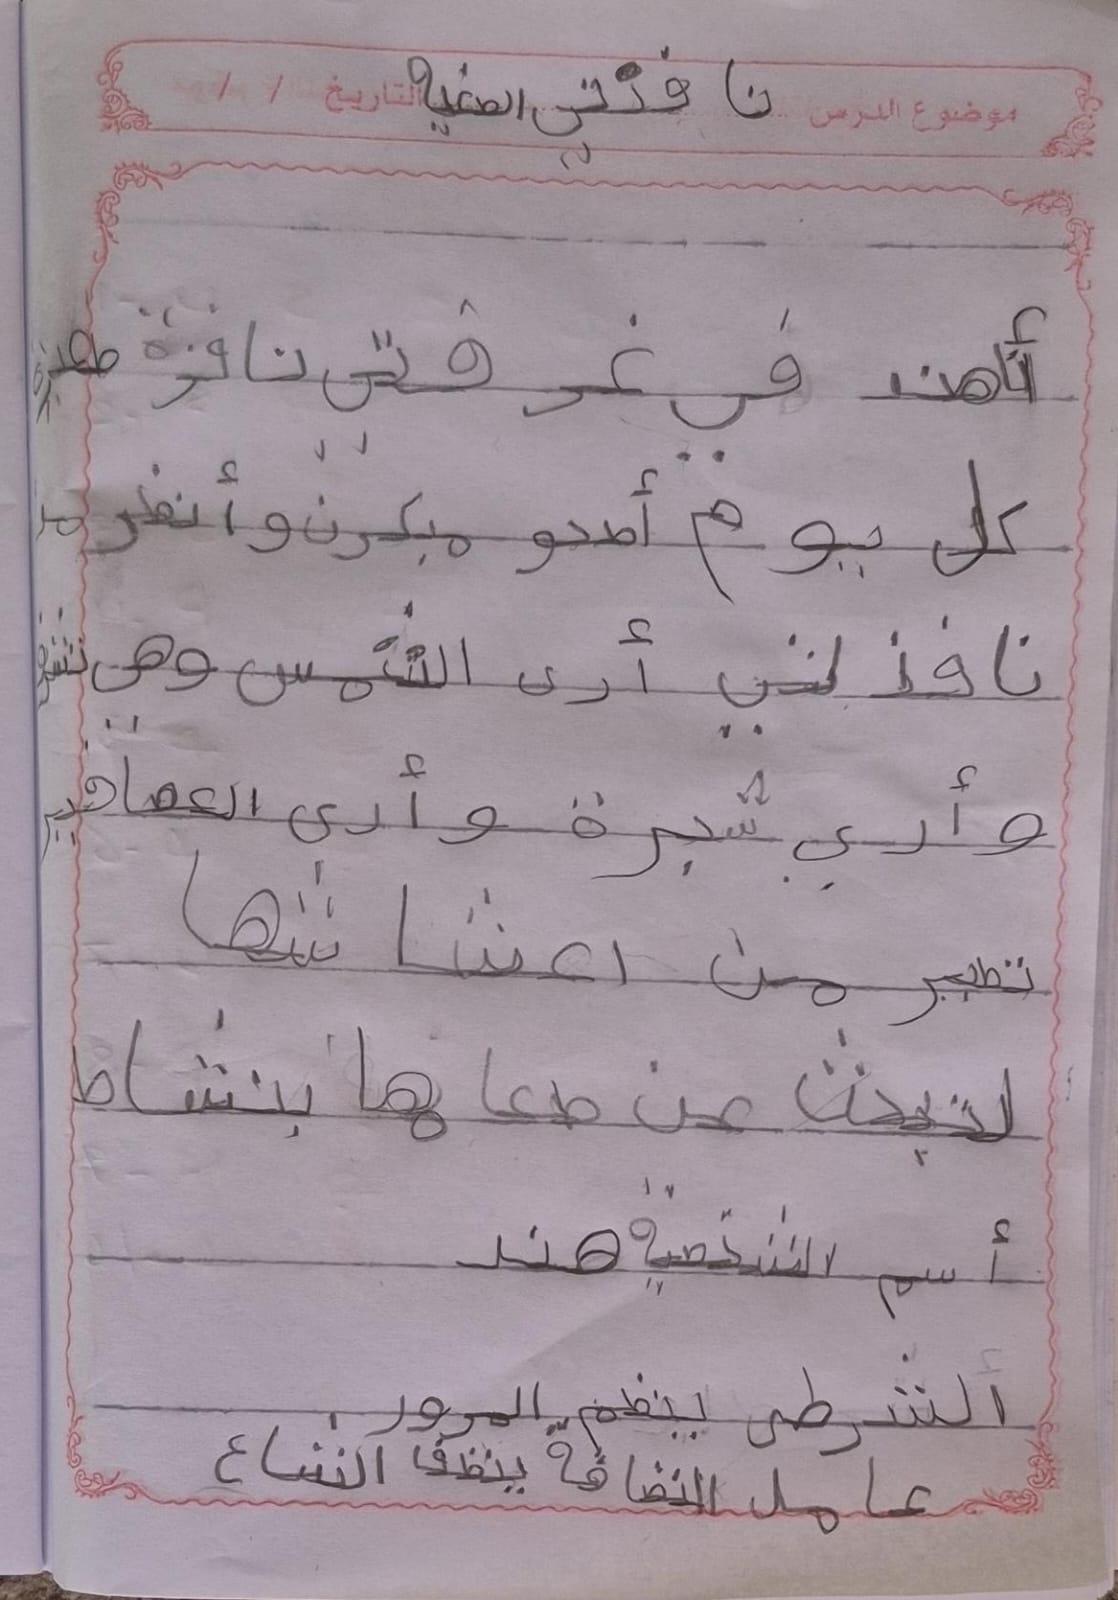 نا فذتي الصغية
موضوع الدرس التاريخ / /
أناهند في غر فتي نافزة صغيرة
كل يوم أصحو مبكرن وأنظر من
نا فذ لتي أرى الشمس وهى تشر
و أري شجرة و أرى العصافير
تطير من اعشا شها
لتبحث عن طعا مها بنشاط
أسم الشخصية هند
ألشرطى ينظم المرور
عا مل النضافة ينظف الشاع